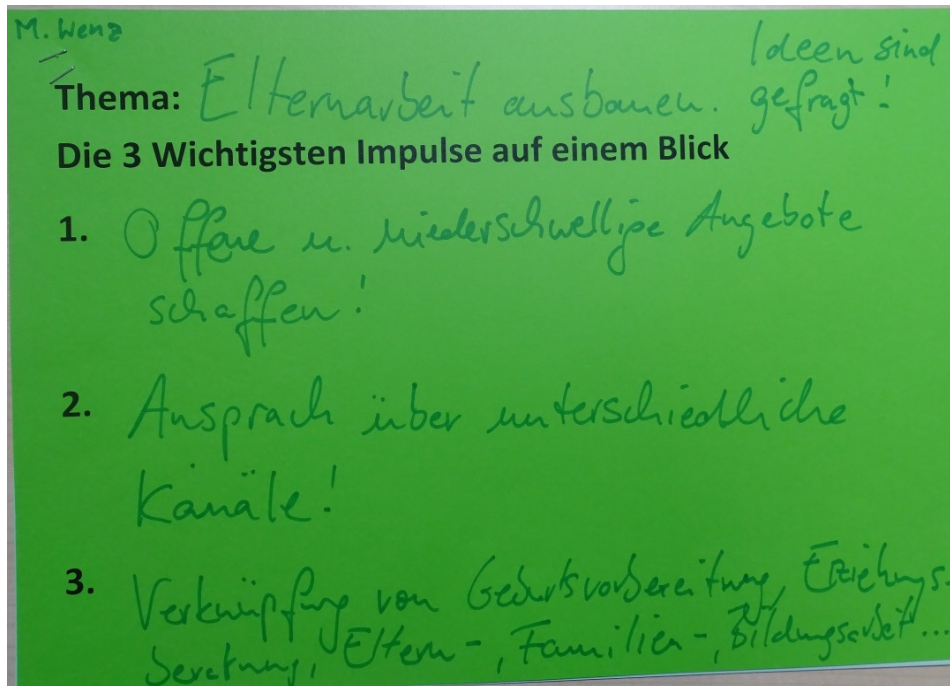 M. Wenz
Ideen sind
Thema: Elternarbeit ausbauen. gefragt!
Die 3 Wichtigsten Impulse auf einem Blick
1. Offene u. niederschwellige Angebote
schaffen!
2. Ansprach über unterschiedliche
Kanäle!
3. Verknüpfung von Geburtsvorbereitung, Erziehungs-
beratung, Eltern-, Familien-, Bildungsarbeit...